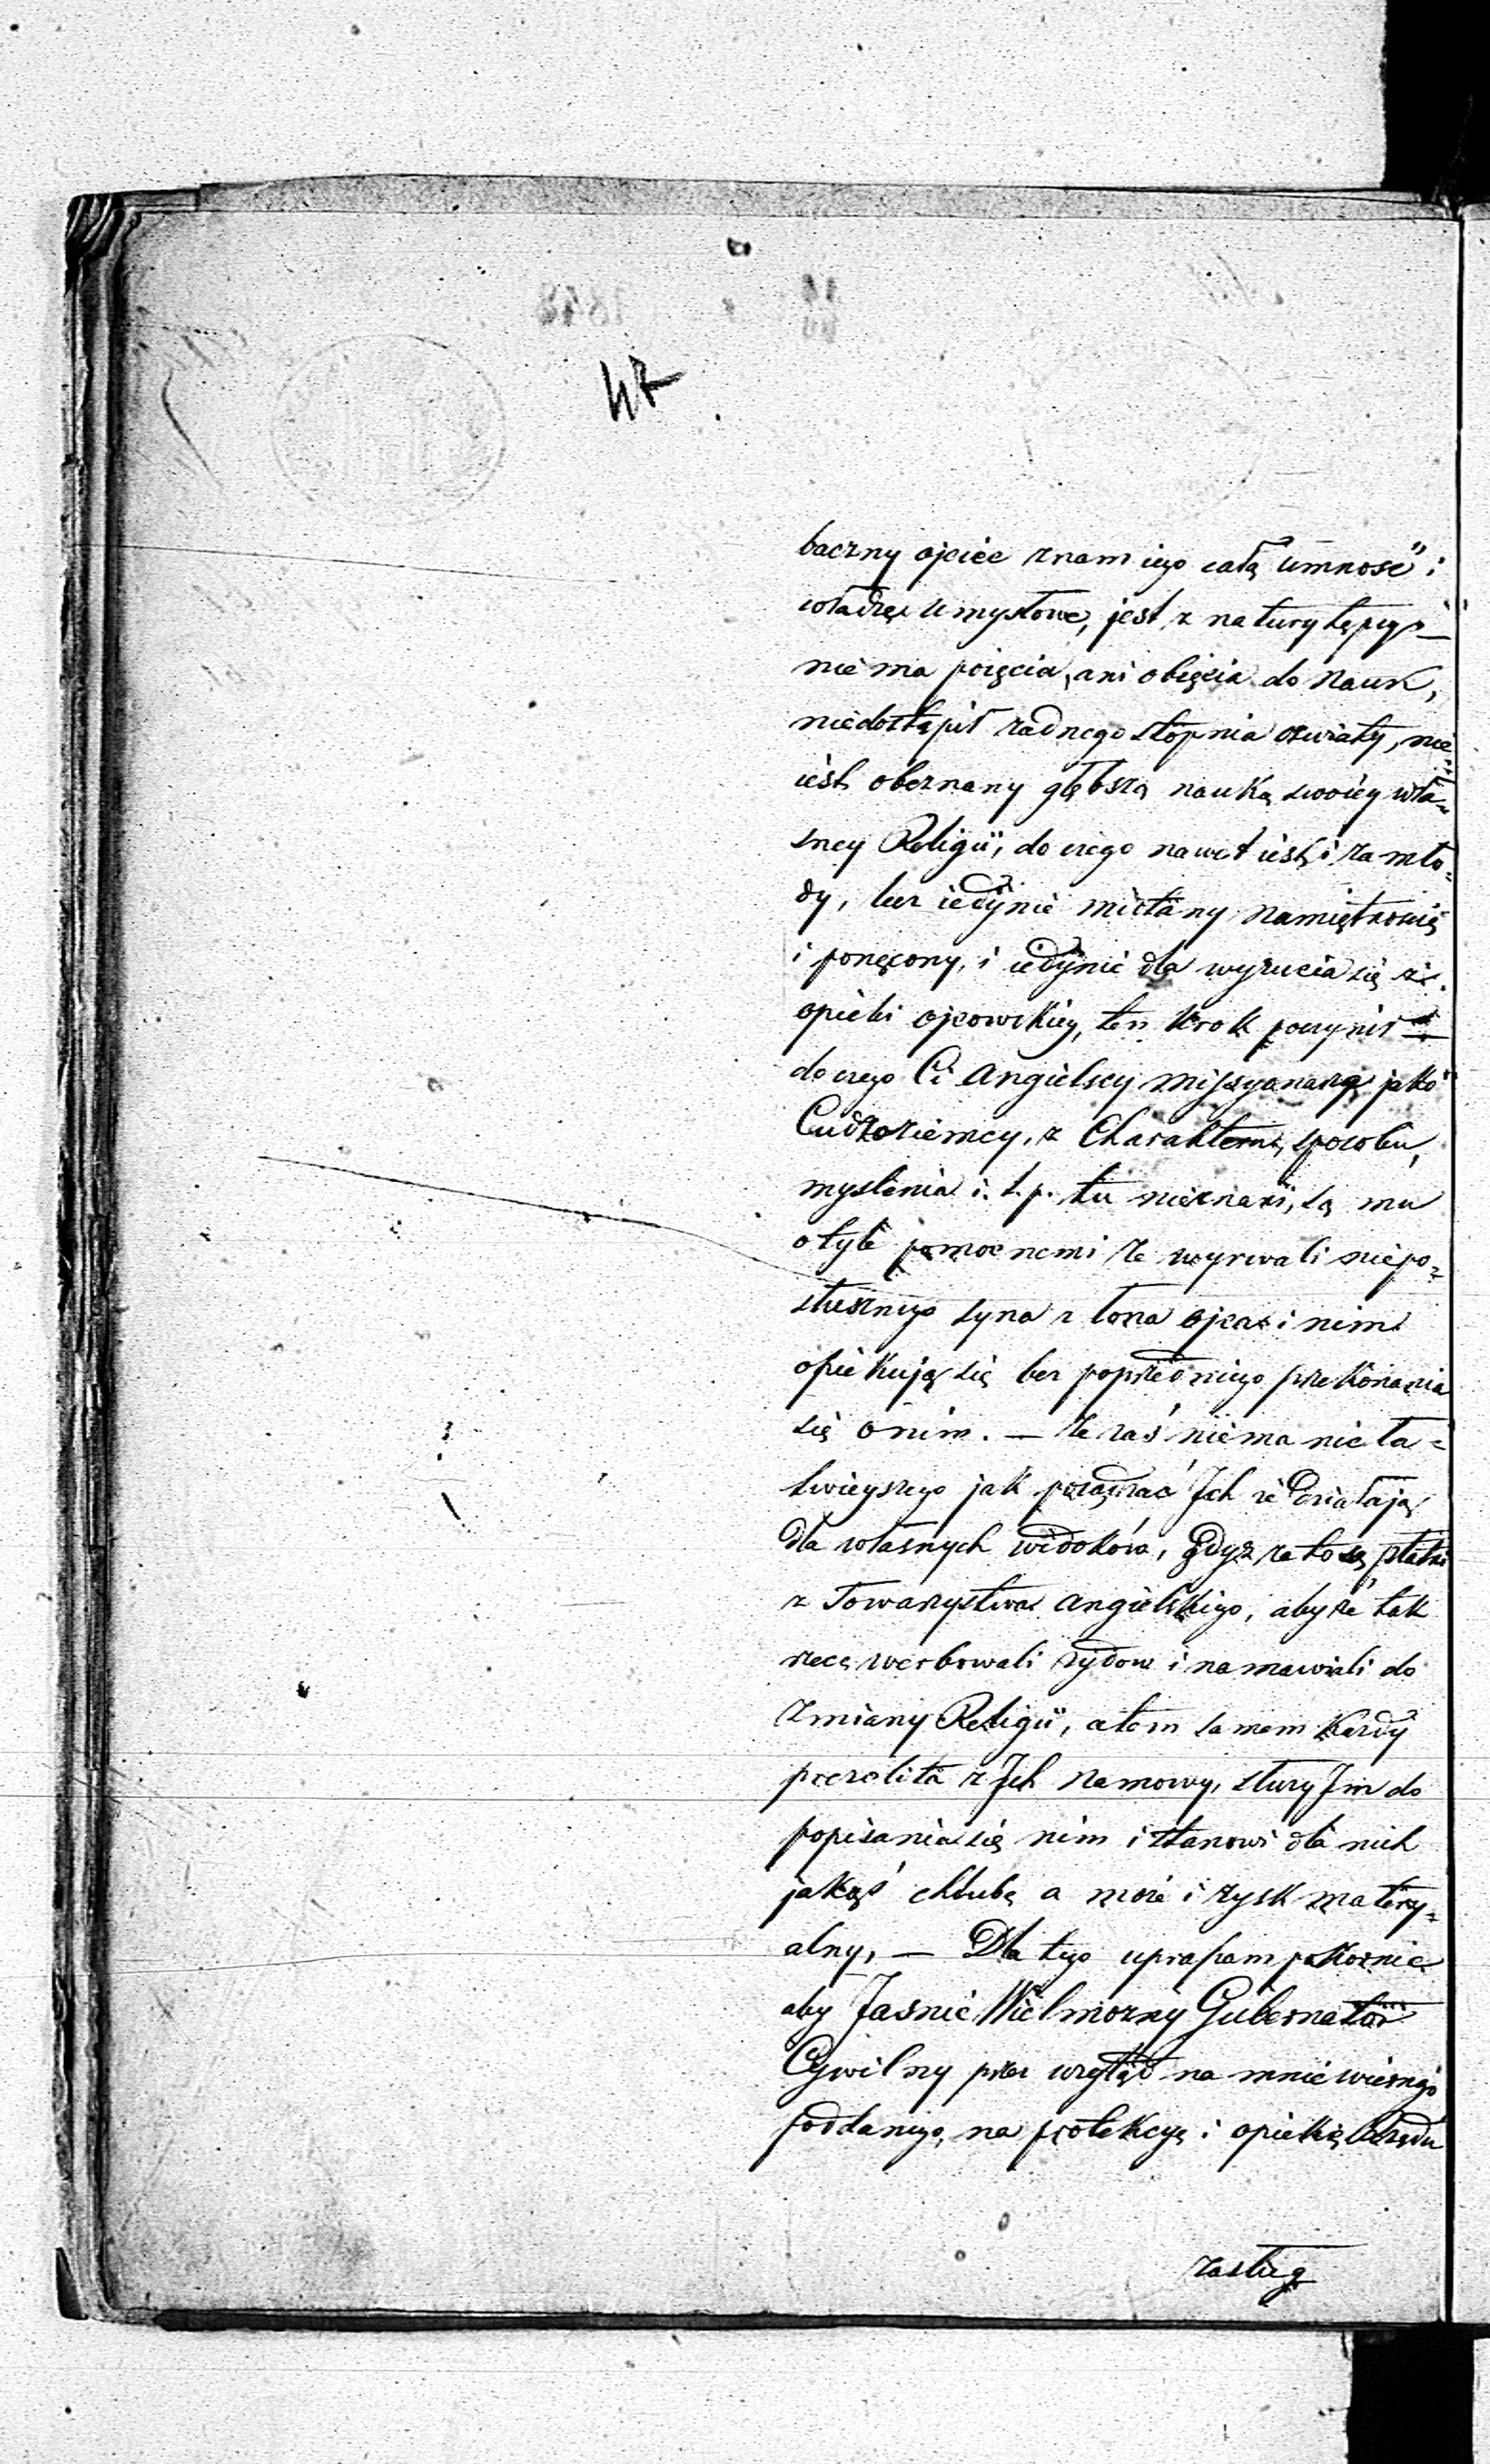 47
baczny ojciec znam iego całą umność i
władzę umysłowe, jest z natury tępego —
niema poięcia, ani obięcia do nauk,
niedostąpił żadnego stopnia oświaty, nie
iest obeznany głębszą nauką swoiey wła=
sney Religii, do czego nawet iest i za mło=
dy, lecz iedynie miotany namiętnością
i ponęcony, i iedynie dla wyzucia się z
opieki ojcowskiey, ten krok poczynił —
do czego Ci Angielscy Missyonarze jako
Cudzoziemcy, z Charakteru, sposobu,
myslenia i. t. p. tu nieznani, są mu
otyle pomocnemi że wyrwali niepo=
słusznego syna z łona ojca i nim
opiekują się bez poprzedniego przekonania
się o nim. — że zaś niema nic ła=
twieyszego jak posądzać Ich że działają
dla własnych widoków, gdyż za to są płatni
z Towarzystwa Angielskiego, aby że tak
rzec werbowali żydów i namawiali do
zmiany Religii, a tem samem każdy
prozelita z Ich namowy, służy Im do
popisania się nim i stanowi dla nich
jakąś chlubę a może i zysk matery=
alny, — Dla tego upraszam pokornie
aby Jasnie Wielmożny Gubernator
Cywilny przez wzgląd na mnie wiernego
poddanego, na protekcyę i opiekę Rządu
zasług